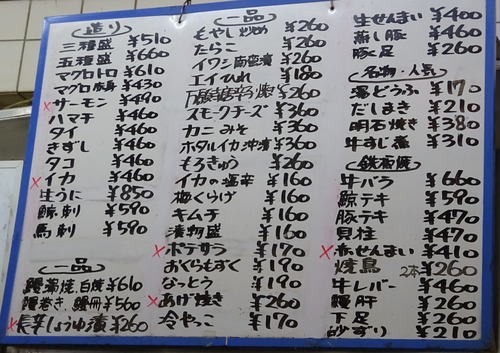 造り
三種盛 ¥510
五種盛 ¥660
マグロトロ ¥610
マグロ赤身 ¥430
×サーモン ¥490
ハマチ ¥460
タイ ¥460
きずし ¥460
タコ ¥460
×イカ ¥460
生うに ¥850
鯨刺 ¥590
馬刺 ¥590
一品
鰻蒲焼,白焼 ¥610
鰻巻き,鰻ザク ¥560
×長芋しょうゆ漬 ¥260
一品
もやし炒め ¥260
たらこ ¥260
イワシ南蛮漬 ¥260
エイひれ ¥180
万願寺唐辛子焼 ¥260
スモークチーズ ¥360
カニみそ ¥360
ホタルイカ沖漬 ¥360
もろきゅう ¥260
イカの塩辛 ¥160
梅くらげ ¥160
キムチ ¥160
漬物盛 ¥160
×ポテサラ ¥170
おくらもずく ¥190
なっとう ¥190
×あげ焼き ¥260
冷やっこ ¥170
生せんまい ¥400
蒸し豚 ¥460
豚足 ¥260
名物・人気
湯どうふ ¥170
だしまき ¥210
明石焼き ¥380
牛すじ煮 ¥310
鉄板焼
牛バラ ¥660
鯨テキ ¥590
豚テキ ¥470
貝柱 ¥470
×赤せんまい ¥410
焼鳥 2本¥260
牛レバー ¥460
鰻肝 ¥260
下足 ¥260
砂ずり ¥210